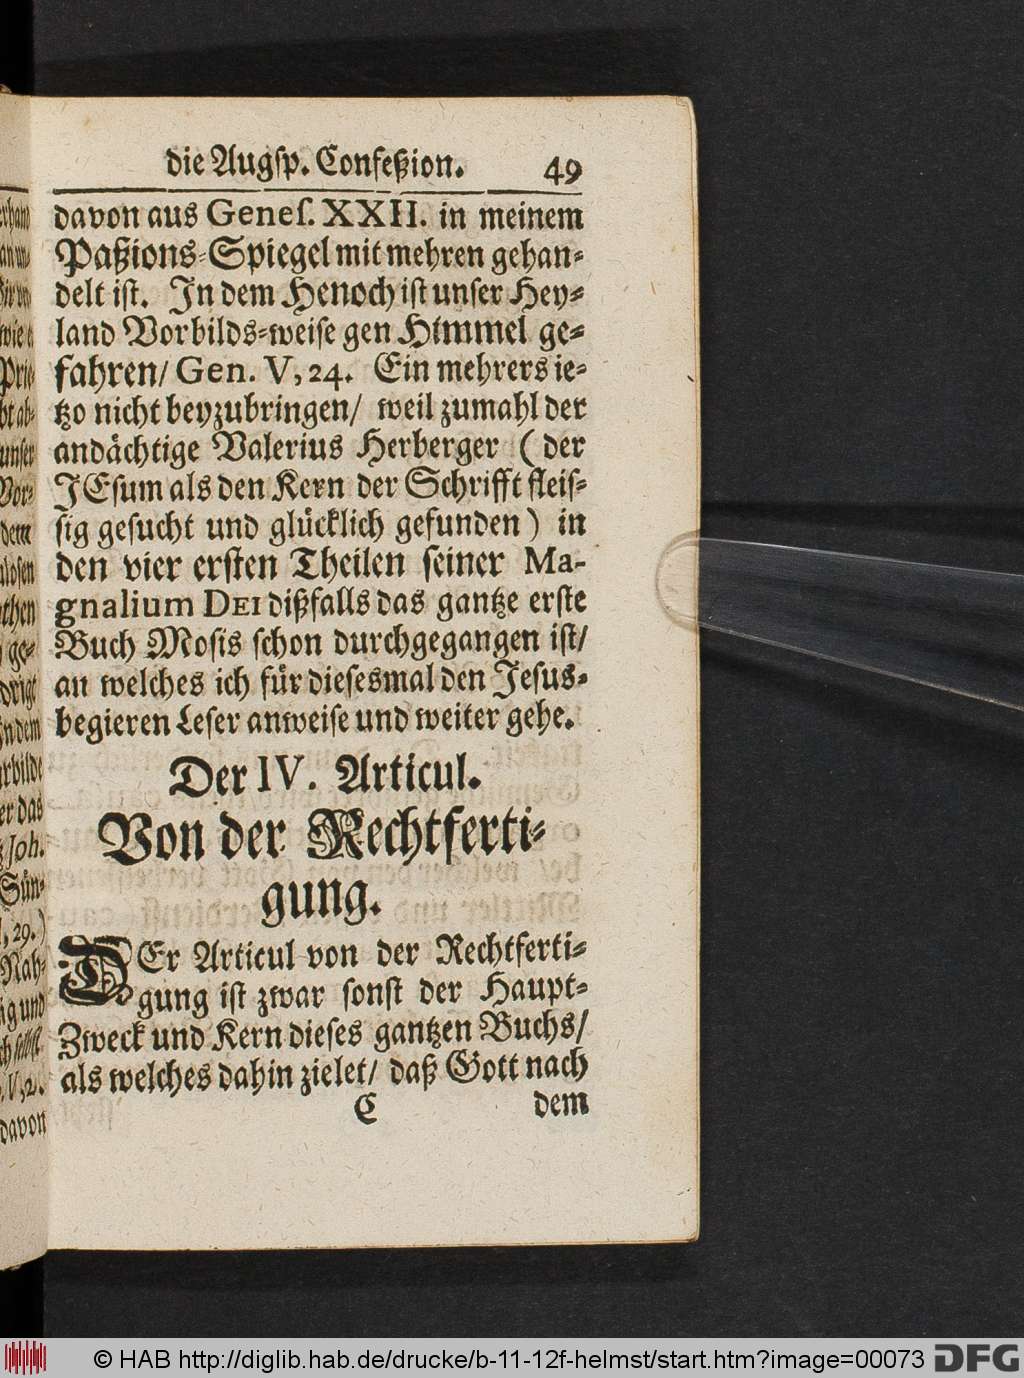 die Augsp. Confeßion. 49
davon aus Genes. XXII. in meinem
Paßions-Spiegel mit mehren gehan-
delt ist. In dem Henoch ist unser Hey-
land Vorbilds-weise gen Himmel ge-
fahren/ Gen. V, 24. Ein mehrers ie-
tzo nicht beyzubringen/ weil zumahl der
andächtige Valerius Herberger ( der
JEsum als den Kern der Schrifft fleis-
sig gesucht und glücklich gefunden ) in
den vier ersten Theilen seiner Ma-
gnalium DEI dißfalls das gantze erste
Buch Mosis schon durchgegangen ist/
an welches ich für diesesmal den Jesus-
begieren Leser anweise und weiter gehe.
Der IV. Articul.
Von der Rechtferti-
gung.
DEr Articul von der Rechtferti-
gung ist zwar sonst der Haupt-
Zweck und Kern dieses gantzen Buchs/
als welches dahin zielet/ daß Gott nach
C dem
unser
Vor-
dem
ge-
er das
Joh.
Sün-
, 29.)
Nah-
davon
© HAB http://diglib.hab.de/drucke/b-11-12f-helmst/start.htm?image=00073 DFG